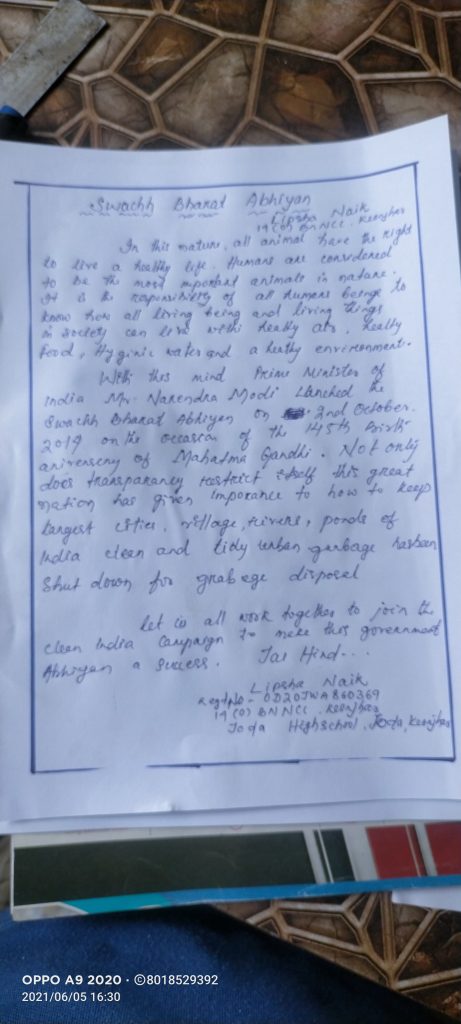 Swachh Bharat Abhiyan
Lipsha Naik
19 (O) BN NCC. Keonjhar
In this nature, all animal have the right
to live a healthy life. Humans are considered
to be the most important animals in nature.
It is the responsibility of all humans beings to
know how all living being and living things
in society can live with healty air, healty
food, Hyginic water and a healthy environment.
With this mind Prime Minister of
India Mr. Narendra Modi Lanched the
Swachh Bharat Abhiyan on 2nd October.
2019 on the occasion of the 145th birth
aniversery of Mahatma Gandhi. Not only
does transparancy restrict itself this great
nation has given imporance to how to keep
largest cities, village, rivers, ponds of
India clean and tidy urban garbage hasbeen
Shut down for garbage disposal
Let us all work together to join the
clean India Campaign to make this government
Abhiyan a success. Jai Hind...
Lipsha Naik
Regd No - OD20JWA860369
19 (O) BN NCC. Keonjhar
Joda Highschool, Joda, Keonjhar
OPPO A9 2020 · ©8018529392
2021/06/05 16:30